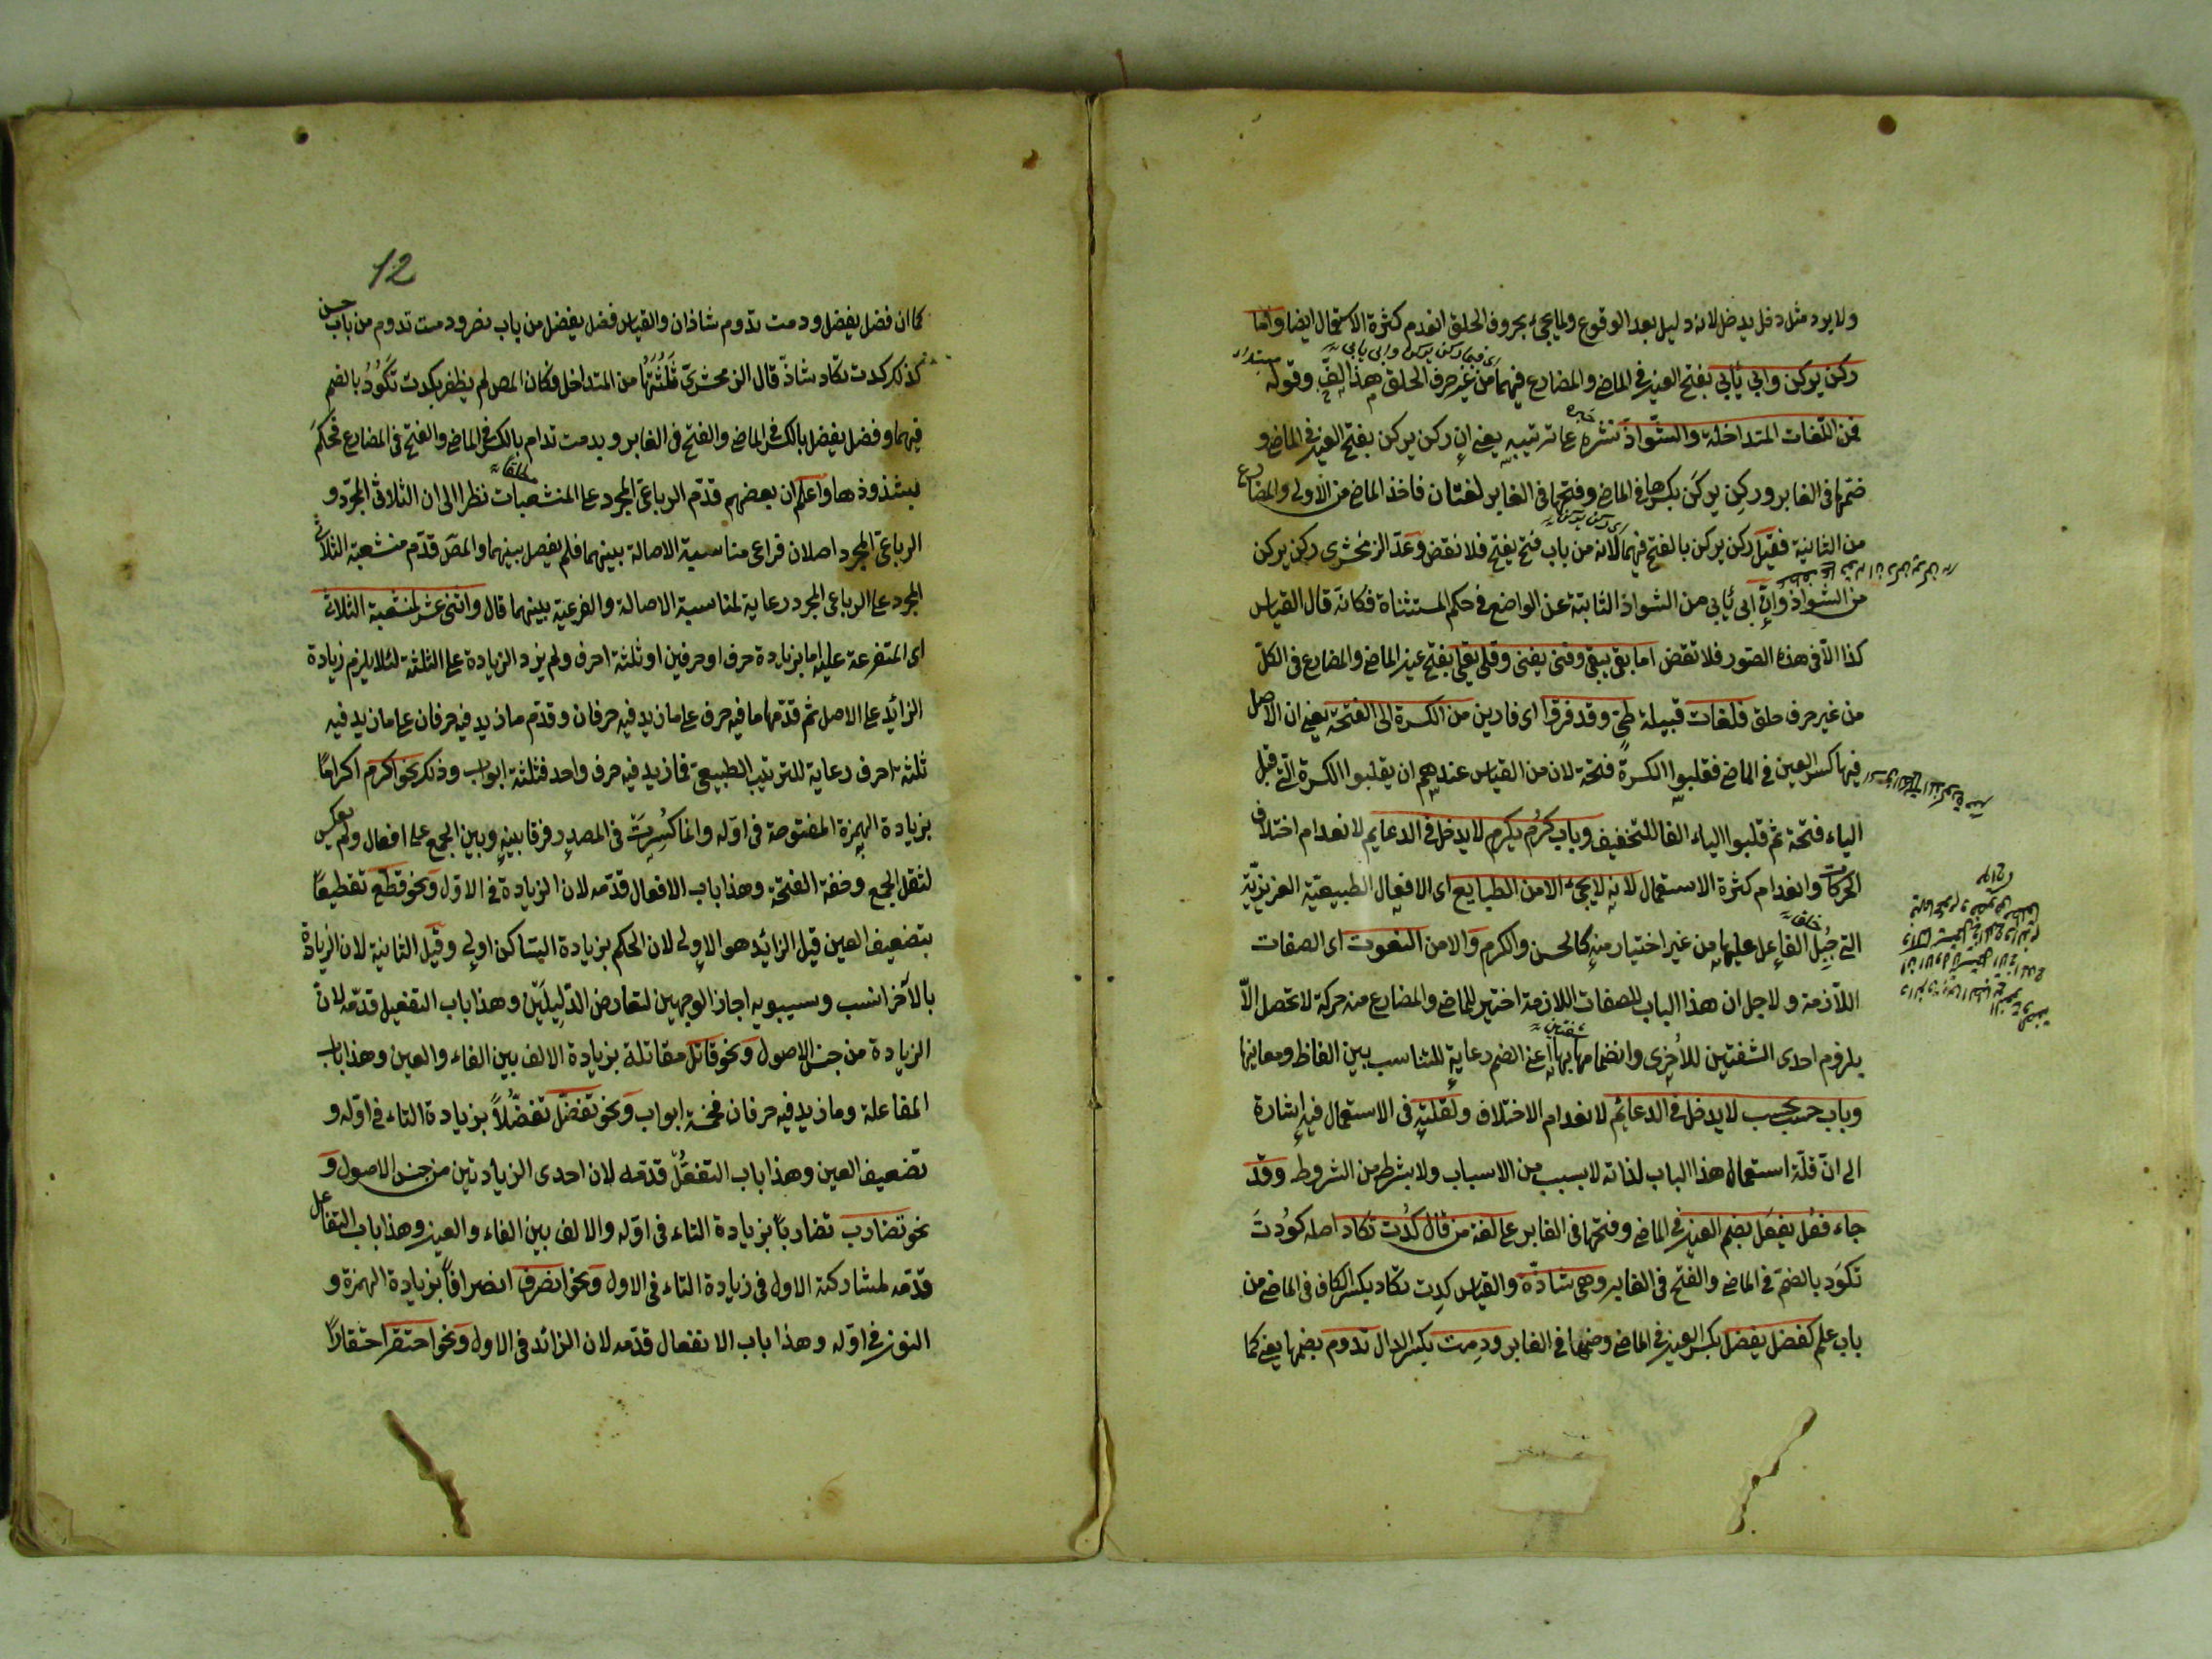 ولا يرد مثل دخل يدخل لانه دليل بعد الوقوع ولما يجئ بحروف الحلق انعدم كثرة الاستعمال ايضا واما
ركن يركن وابى يأبى بفتح العين في الماضى والمضارع فيهما من غير حرف الحلق هذا لف وقوله
اى فيما ركن يركن وابى يابى
مبتداء
فمن اللغات المتداخلة والشواذ نشره على ترتيبه يعنى ان ركن يركن بفتح العين في الماضى و
خبره
ضمها فى الغابر وركن يركن بكسرها فى الماضى وفتحها فى الغابر لغتان فاخذ الماضى من الاولى والمضارع
من الثانية فقيل ركن يركن بالفتح فيهما لانه من باب فتح يفتح فلا نقض وعد الزمخشرى ركن يركن
اى ركن يركن
من الشواذ وان ابى يأبى من الشواذ الثابتة عن الواضع فى حكم المستثناة فكانه قال القياس
كذا الا فى هذه الصور فلا نقض اما بقى يبقى وفنى يفنى وقلى يقلى بفتح عين الماضى والمضارع فى الكل
من غير حرف حلق فلغات قبيلة طى وقد فروا اى فارين من الكسرة الى الفتحة يعنى ان الاصل
فيها كسر العين فى الماضى فقلبوا الكسرة فتحة لان من القياس عندهم ان يقلبوا الكسرة التى قبل
الياء فتحة ثم قلبوا الياء الفا للتخفيف وباب كرم يكرم لا يدخل فى الدعايم لانعدام اختلاف
الحركات وانعدام كثرة الاستعمال لانه لا يجئ الا من الطبايع اى الافعال الطبيعية الغريزية
التى جبل الفاعل عليها من غير اختيار منه كالحسن والكرم والا من النعوت اى الصفات
خلق
اللازمة ولاجل ان هذا الباب للصفات اللازمة اختير للماضى والمضارع منه حركة لا تحصل الا
بلزوم احدى الشفتين للاخرى وانضمامها بها اعنى الضم رعاية للتناسب بين الفاظ ومعانيها
شفتين
وباب حسب يحسب لا يدخل فى الدعائم لانعدام الاختلاف ولقلته فى الاستعمال فيه اشارة
الى ان قلة استعمال هذا الباب لذاته لا بسبب من الاسباب ولا بشرط من الشروط وقد
جاء فعل يفعل بضم العين فى الماضى وفتحها فى الغابر على لغة من قال كدت تكاد اصله كودت
تكود بالضم فى الماضى والفتح فى الغابر وهى شاذة والقياس كدت تكاد بكسر الكاف فى الماضى من
باب علم كفضل يفضل بكسر العين فى الماضى وضمها فى الغابر ودمت بكسر الدال تدوم بضمها يعنى كما
12
كما ان فضل يفضل ودمت تدوم شاذان والقياس فضل يفضل من باب نصر ودمت تدوم من باب حسن
كذلك كدت تكاد شاذ قال الزمحشرى ثلثتها من المتداخل وكان المص لم يظفر بكدت تكود بالضم
فيهما وفضل يفضل بالكسر فى الماضى والفتح فى الغابر وبدمت تدام بالكسر فى الماضى والفتح فى المضارع فحكم
بشذوذها واعلم ان بعضهم قدم الرباعى المجرد على المنشعبات نظرا الى ان الثلاثى المجرد و
مطلقا
الرباعى المجرد اصلان فراعى مناسبة الاصالة بينهما فلم يفصل بينهما والمص قدم منشعبة الثلاثى
المجرد على الرباعى المجرد رعاية لمناسبة الاصالة والفرعية بينهما قال واثنى عشر لمنشعبة الثلاثى
اى المتفرعة عليه اما بزيادة حرف او حرفين او ثلثة احرف ولم يزد الزيادة على الثلثة لئلا يلزم زيادة
الزائد على الاصل ثم قدمها ما فيه حرف على ما زيد فيه حرفان وقدم ما زيد فيه حرفان على ما زيد فيه
ثلثة احرف رعاية للترتيب الطبيعى فما زيد فيه حرف واحد فثلثة ابواب وذلك نحو اكرم اكراما
بزيادة الهمزة المفتوحة فى اوله وانما كسرت فى المصدر فرقا بينه وبين الجمع على افعال ولم يعكس
لثقل الجمع وخفة الفتحة وهذا باب الافعال قدمه لان الزيادة فى الاول ونحو قطع تقطيعا
بتضعيف العين قيل الزائد هو الاولى لان الحكم بزيادة الساكن اولى وقيل الثانية لان الزيادة
بالآخر انسب وسيبويه اجاز الوجهين لتعارض الدليلين وهذا باب التفعيل قدمه لان
الزيادة من جنس الاصول ونحو قاتل مقاتلة بزيادة الالف بين الفاء والعين وهذا باب
المفاعلة وما زيد فيه حرفان فخمسة ابواب ونحو تفضل تفضلا بزيادة التاء فى اوله و
تضعيف العين وهذا باب التفعل قدمه لان احدى الزيادتين من جنس الاصول و
نحو تضارب تضاربا بزيادة التاء فى اوله والالف بين الفاء والعين وهذا باب التفاعل
قدمه لمشاركته الاول فى زيادة التاء فى الاول ونحو انصرف انصرافا بزيادة الهمزة و
النون فى اوله وهذا باب الانفعال قدمه لان الزائد فى الاول ونحو احتقر احتقارا